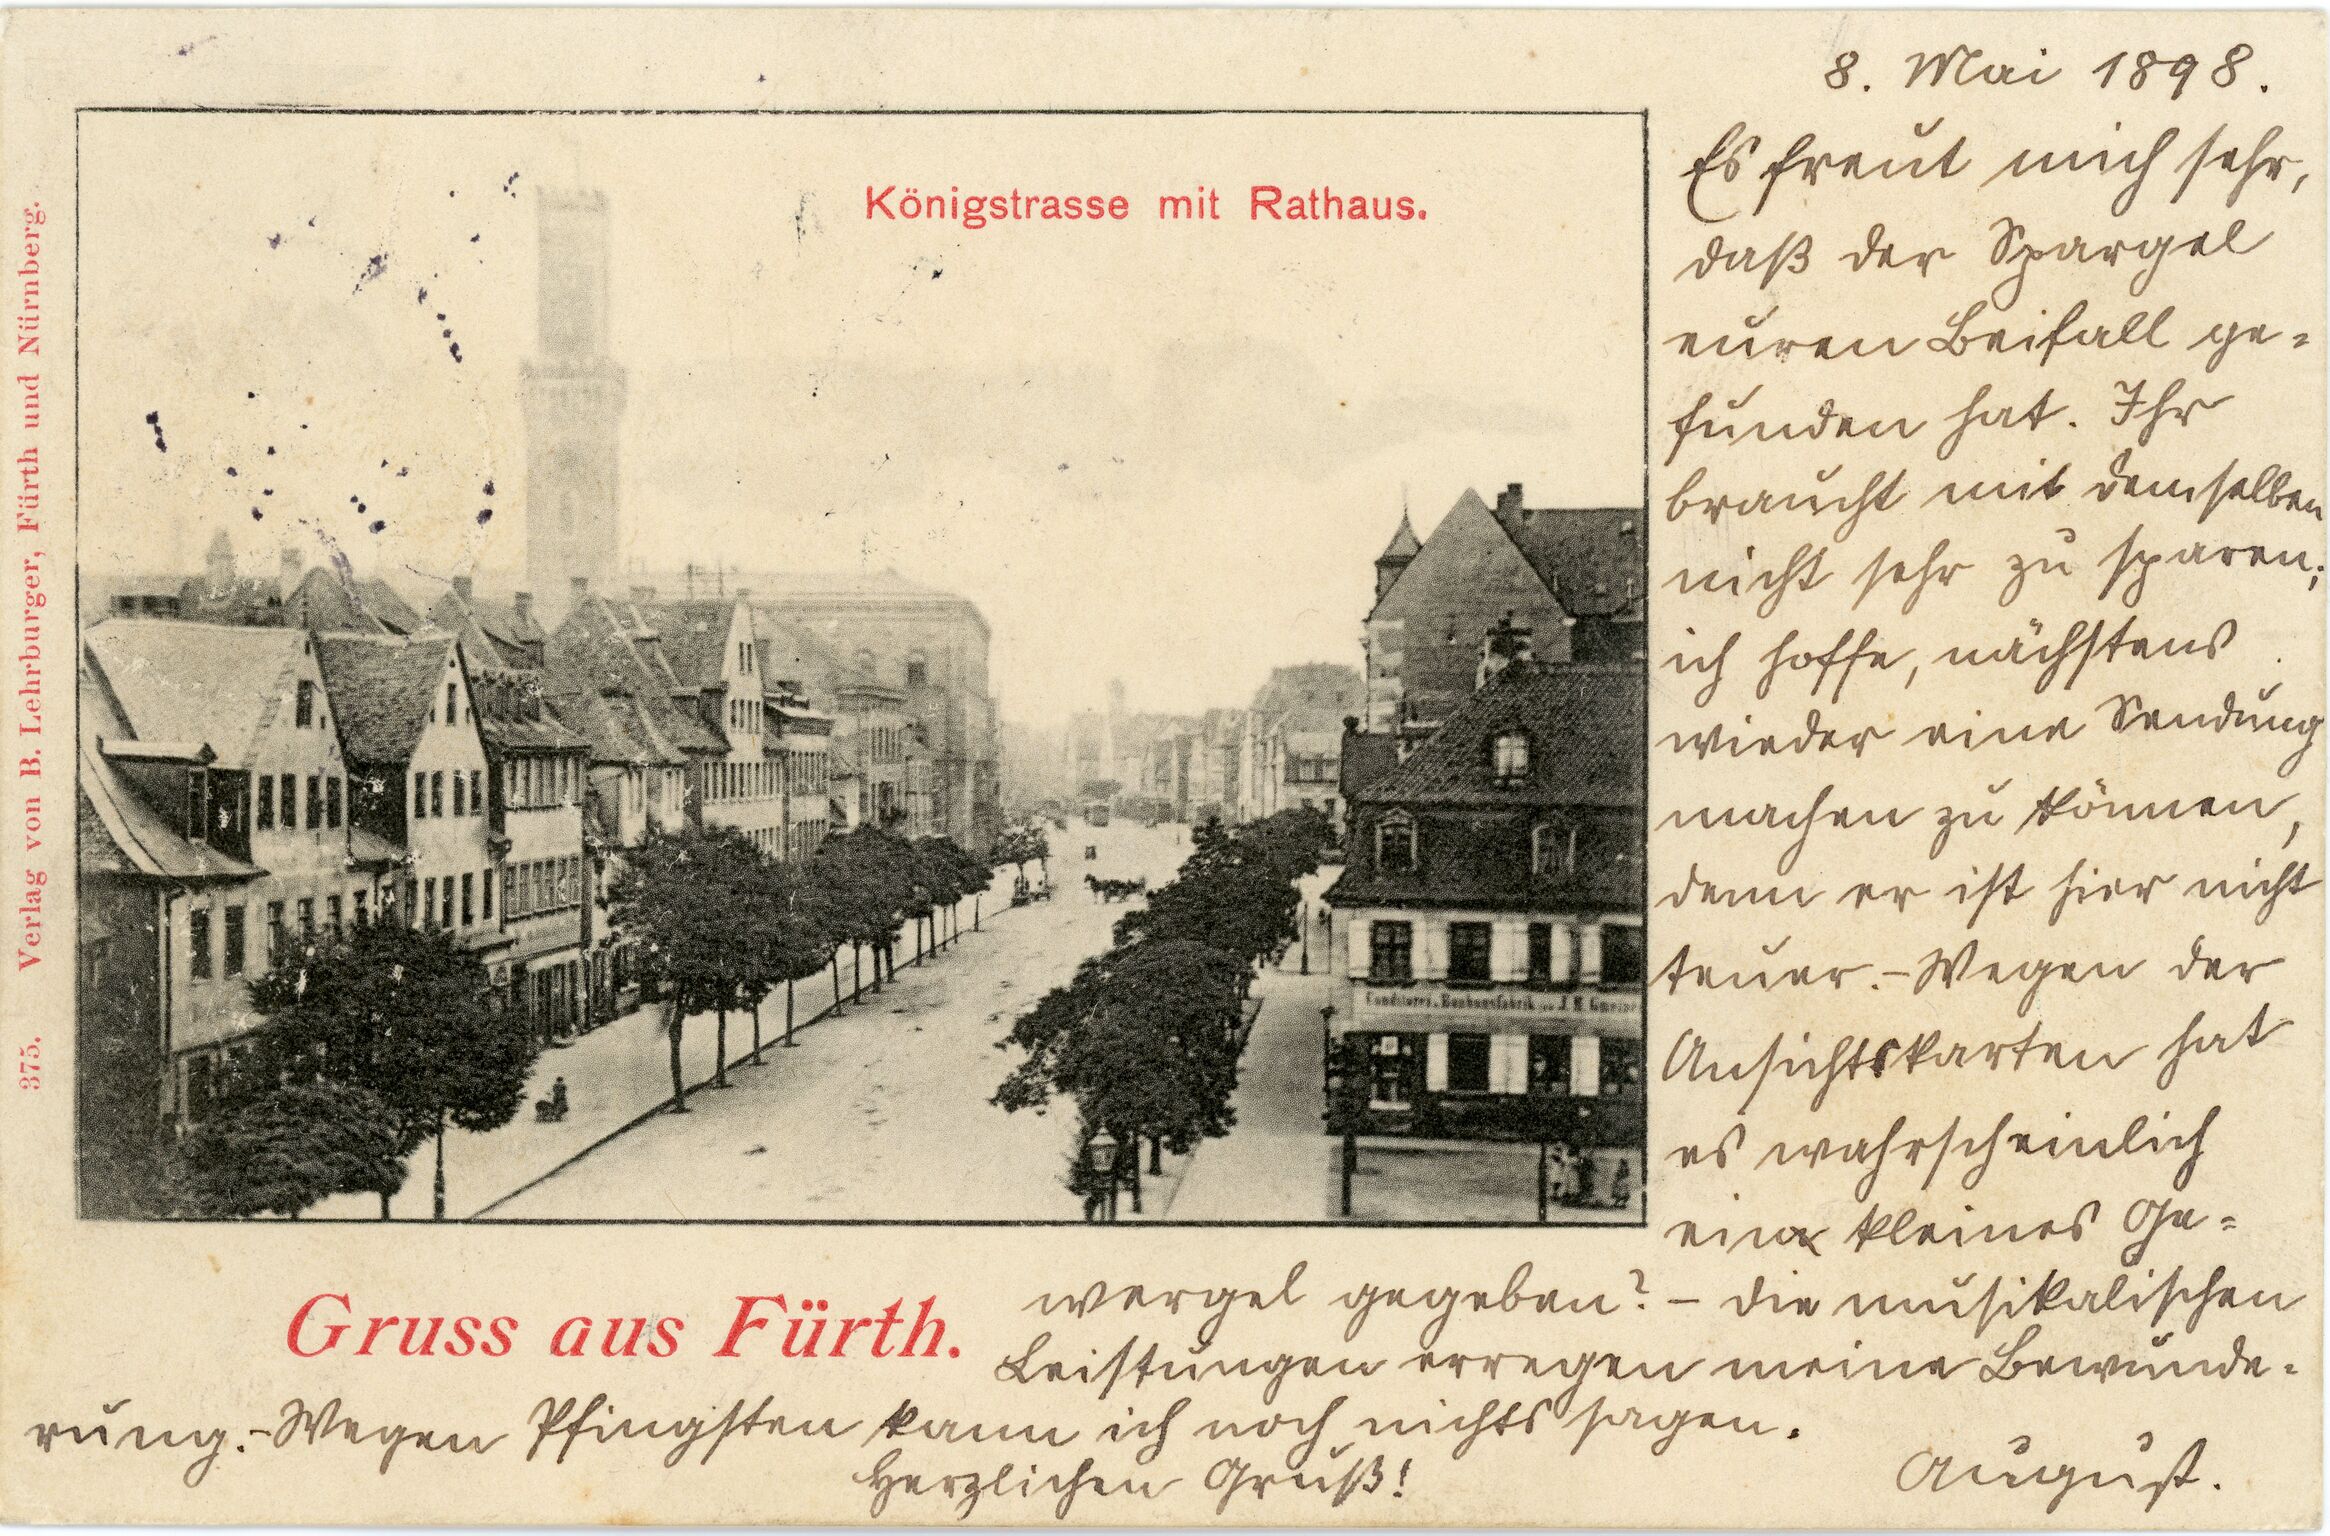 Königstrasse mit Rathaus.
375. Verlag von B. Lehrburger, Fürth und Nürnberg.
Gruss aus Fürth.
8. Mai 1898.
Es freut mich sehr,
daß der Spargel
euren Beifall ge=
funden hat. Ihr
braucht mit demselben
nicht sehr zu sparen;
ich hoffe, nächstens
wieder eine Sendung
machen zu können,
denn er ist hier nicht
teuer.-Wegen der
Ansichtskarten hat
es wahrscheinlich
ein kleines Ge=
wergel gegeben? - die musikalischen
Leistungen erregen meine Bewunde=
rung.-Wegen Pfingsten kann ich noch nichts sagen.
Herzlichen Gruß!
August.